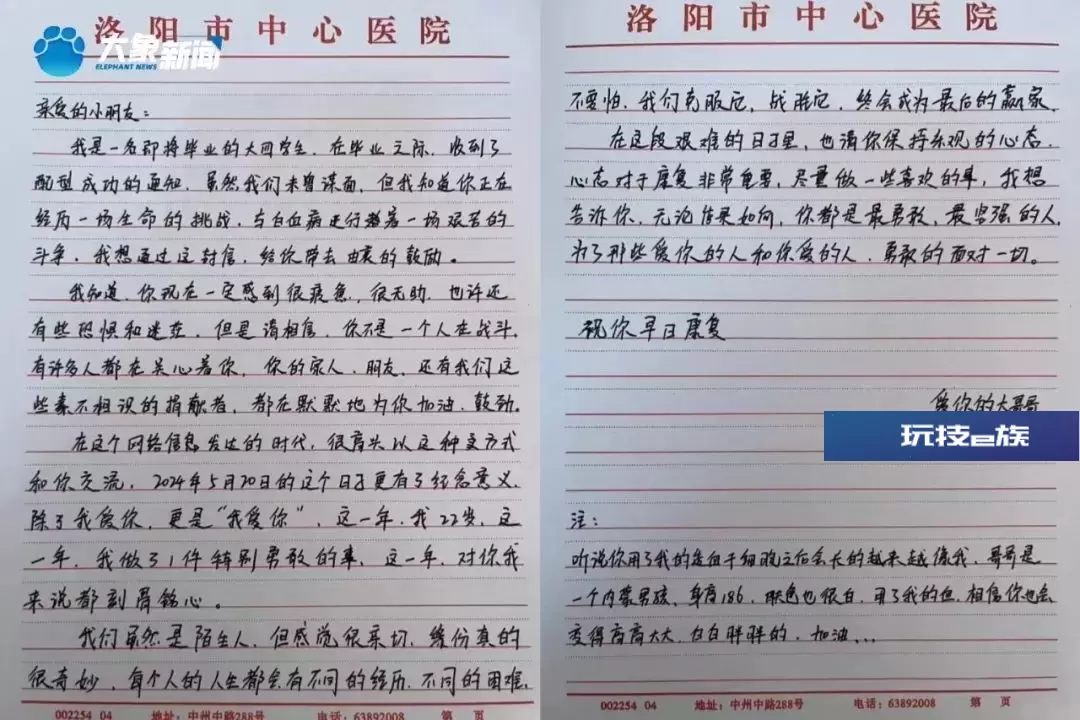 大象新闻
ELEPHANT NEWS
洛阳市中心医院
亲爱的小朋友：
我是一名即将毕业的大四学生，在毕业之际，收到了
配型成功的通知，虽然我们未曾谋面，但我知道你正在
经历一场生命的挑战，与白血病进行着一场艰苦的
斗争，我想通过这封信，给你带去由衷的鼓励。
我知道，你现在一定感到很疲惫，很无助，也许还
有些恐惧和迷茫，但是请相信，你不是一个人在战斗，
有许多人都在关心着你，你的家人、朋友，还有我们这
些素不相识的捐献者，都在默默地为你加油、鼓劲。
在这个网络信息发达的时代，很荣幸以这种文方式
和你交流，2024年5月20日的这个日子更有了纪念意义，
除了我爱你，更是“我爱你”，这一年，我22岁，这
一年，我做了1件特别勇敢的事，这一年，对你我
来说都刻骨铭心。
我们虽然是陌生人，但感觉很亲切，缘份真的
很奇妙，每个人的人生都会有不同的经历，不同的困难，
002254 04 地址：中州中路288号 电话：63892008 第 页
洛阳市中心医院
不要怕，我们克服它，战胜它，终会成为最后的赢家。
在这段艰难的日子里，也请你保持乐观的心态，
心态对于康复非常重要，尽量做一些喜欢的事，我想
告诉你，无论结果如何，你都是最勇敢、最坚强的人，
为了那些爱你的人和你爱的人，勇敢的面对一切。
祝你早日康复
爱你的大哥哥
玩技e族
注：
听说你用了我的造血干细胞之后会长的越来越像我，哥哥是
一个内蒙男孩，身高186，肤色也很白，用了我的血，相信你也会
变得高高大大、白白胖胖的，加油...
002254 04 地址：中州中路288号 电话：63892008 第 页